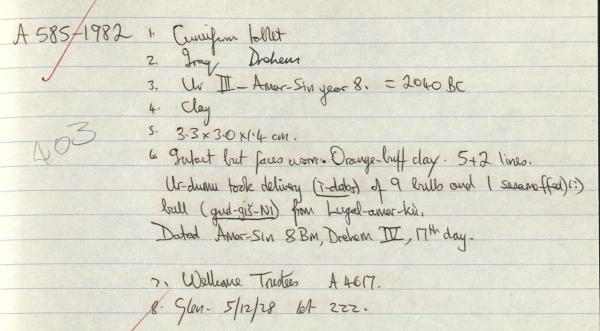 A 585-1982 1. Cuneiform tablet
2. Iraq Drehem
3. Ur III - Amar-Sin year 8. = 2040 BC
4. Clay
403
5. 3.3 x 3.0 x 1.4 cm.
6. Intact but faces worn. Orange-buff clay. 5+2 lines.
Ur-dunu took delivery (ì-dab5) of 9 bulls and 1 sesame(fed)(?)
bull (gud-giš-NI) from Lugal-amar-kù.
Dated Amar-Sin 8 Bm, Drehem IV, 17th day.
7. Wellcome Trustees A 4617.
8. Glen- 5/12/28 lot 222.